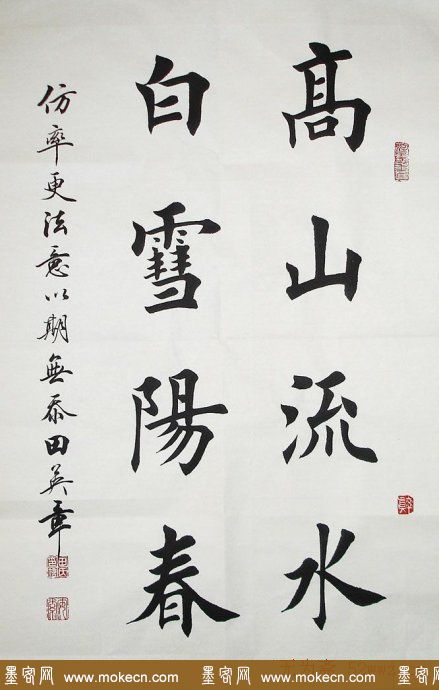 髙山流水
白䨮陽春
仿率更法意以期無忝田英章
墨客网 www.mokecn.com 墨客网 www.mokecn.com